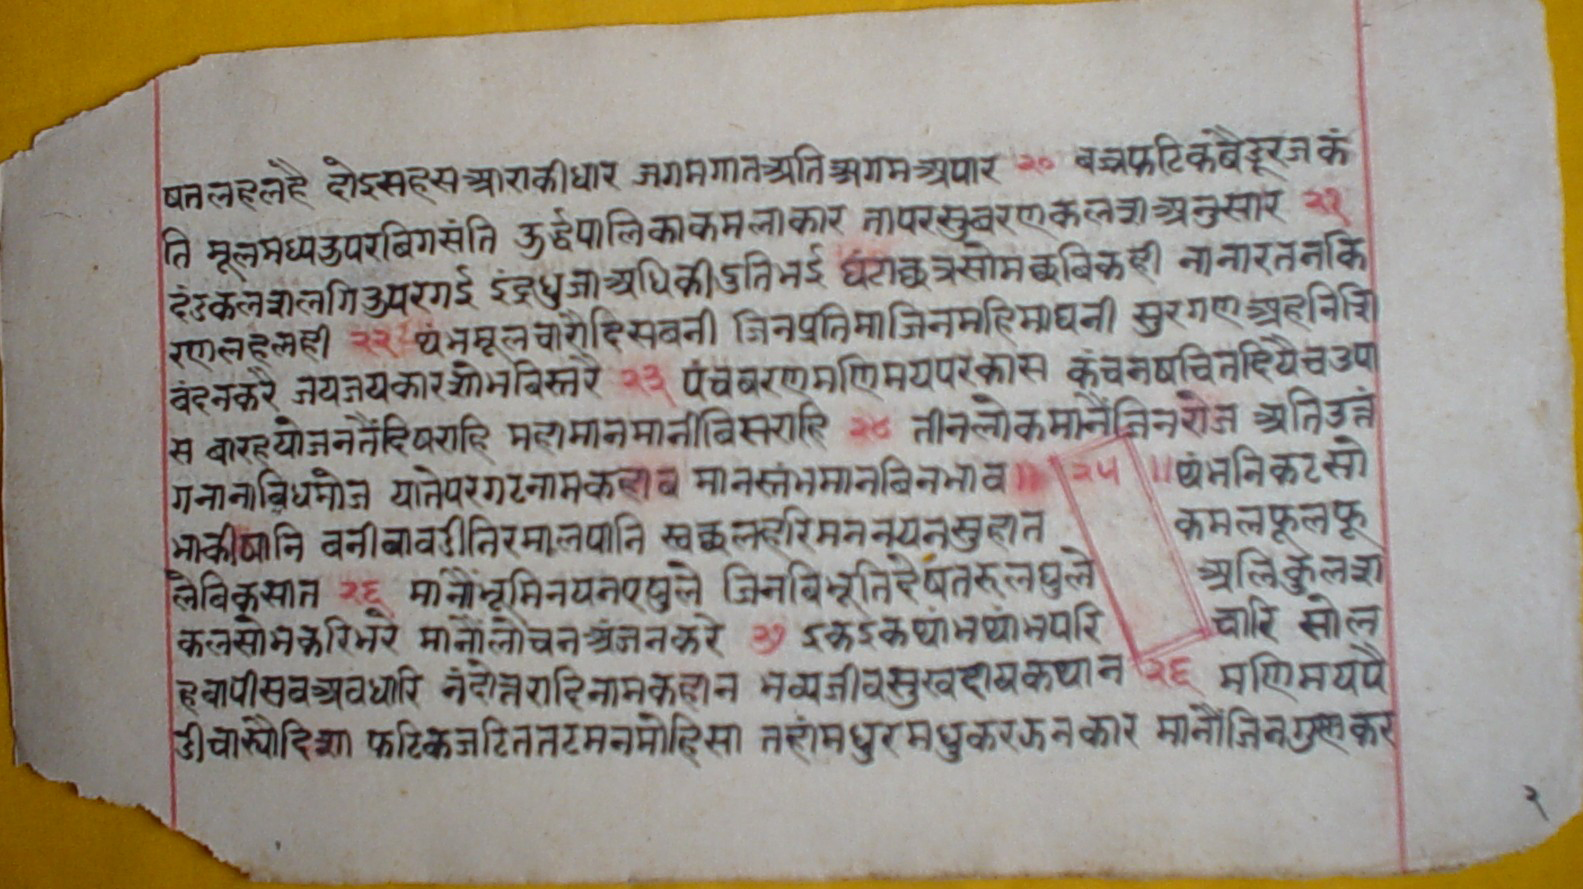 षत लहलहै दोइसहस आराकीधार जगमगातअतिअगमअपार २० बज्रफटिकबैडूरजकं
ति मूलमध्यउपरबिगसंति ऊर्द्धपालिकाकमलाकार तापरसुबरणकलशअनुसार २१
दंडकलशलगिउपरगई इंद्रधुजाअधिकीदुतिभई घंटाछत्रसोमछबिकही नानारतनकि
रणलहलही २२ थंभमूलचारौदिसबनी जिनप्रतिमाजिनमहिमाघनी सुरगणअहनिशि
बंदनकरै जयजयकारशोभबिस्तरै २३ पंचबरणमणिमयपरकास कंचनषचितदियैचउपा
स बारहयोजनतैंदिषराहि महामानमानीबिसराहि २४ तीनलोकमानैंजिनरोज अतिउतं
गनानाबिधमोज यातेपरगटनामकहाव मानस्तंभमानबिनभाव ॥ २५ ॥ थंभनिकटसो
भाकीषानि बनीबावडीनिरमालपानि स्वछलहरिमननयनसुहात कमलफूलफू
लेविकसात २६ मानौंभूमिनयनएषुले जिनबिभूतिदेषतरुलघुले अलिकुलश
कलसोभकरिभरे मानौंलोचनअंजनकरे २७ इकइकथांभथांभपरि चारि सोल
हवापीसबअवधारि नंदोत्तरादिनामकहान भव्यजीवसुखदायकथान २६ मणिमयपै
डीचास्यौदिशा फटिकजटिततटमनमोहिसा तहांमधुरमधुकरझनकार मानौंजिनगुणकर
२